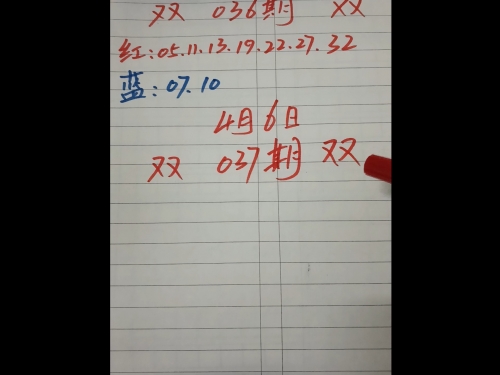 双 036期 双
红:05.11.13.19.22.27.32
蓝:07.10
4月6日
双 037期 双